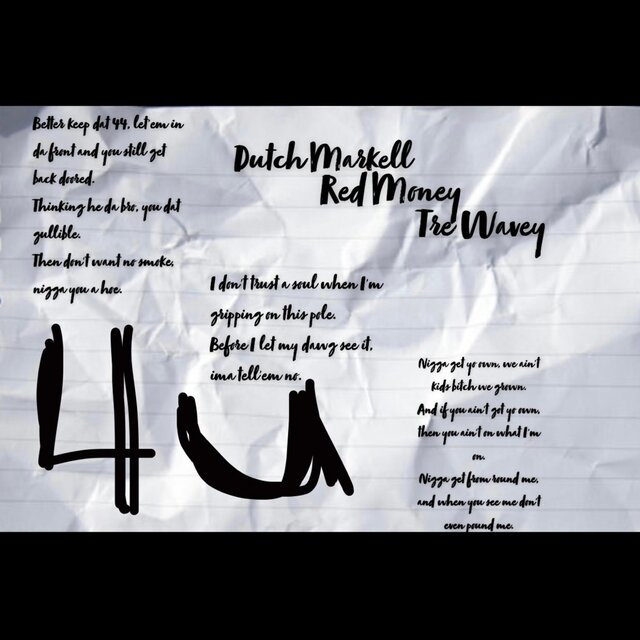 Better keep dat 44, let em in
da front and you still get
back doored.
Thinking he da bro, you dat
gullible.
Then don't want no smoke,
nigga you a hoe.
Dutch Markell
Red Money
Tre Wavey
I don't trust a soul when I'm
gripping on this pole.
Before I let my dawg see it,
ima tell em no.
4u
Nigga get yo own, we ain't
kids bitch we grown.
And if you ain't got yo own,
then you ain't on what I'm
on.
Nigga get from round me,
and when you see me don't
even pound me.